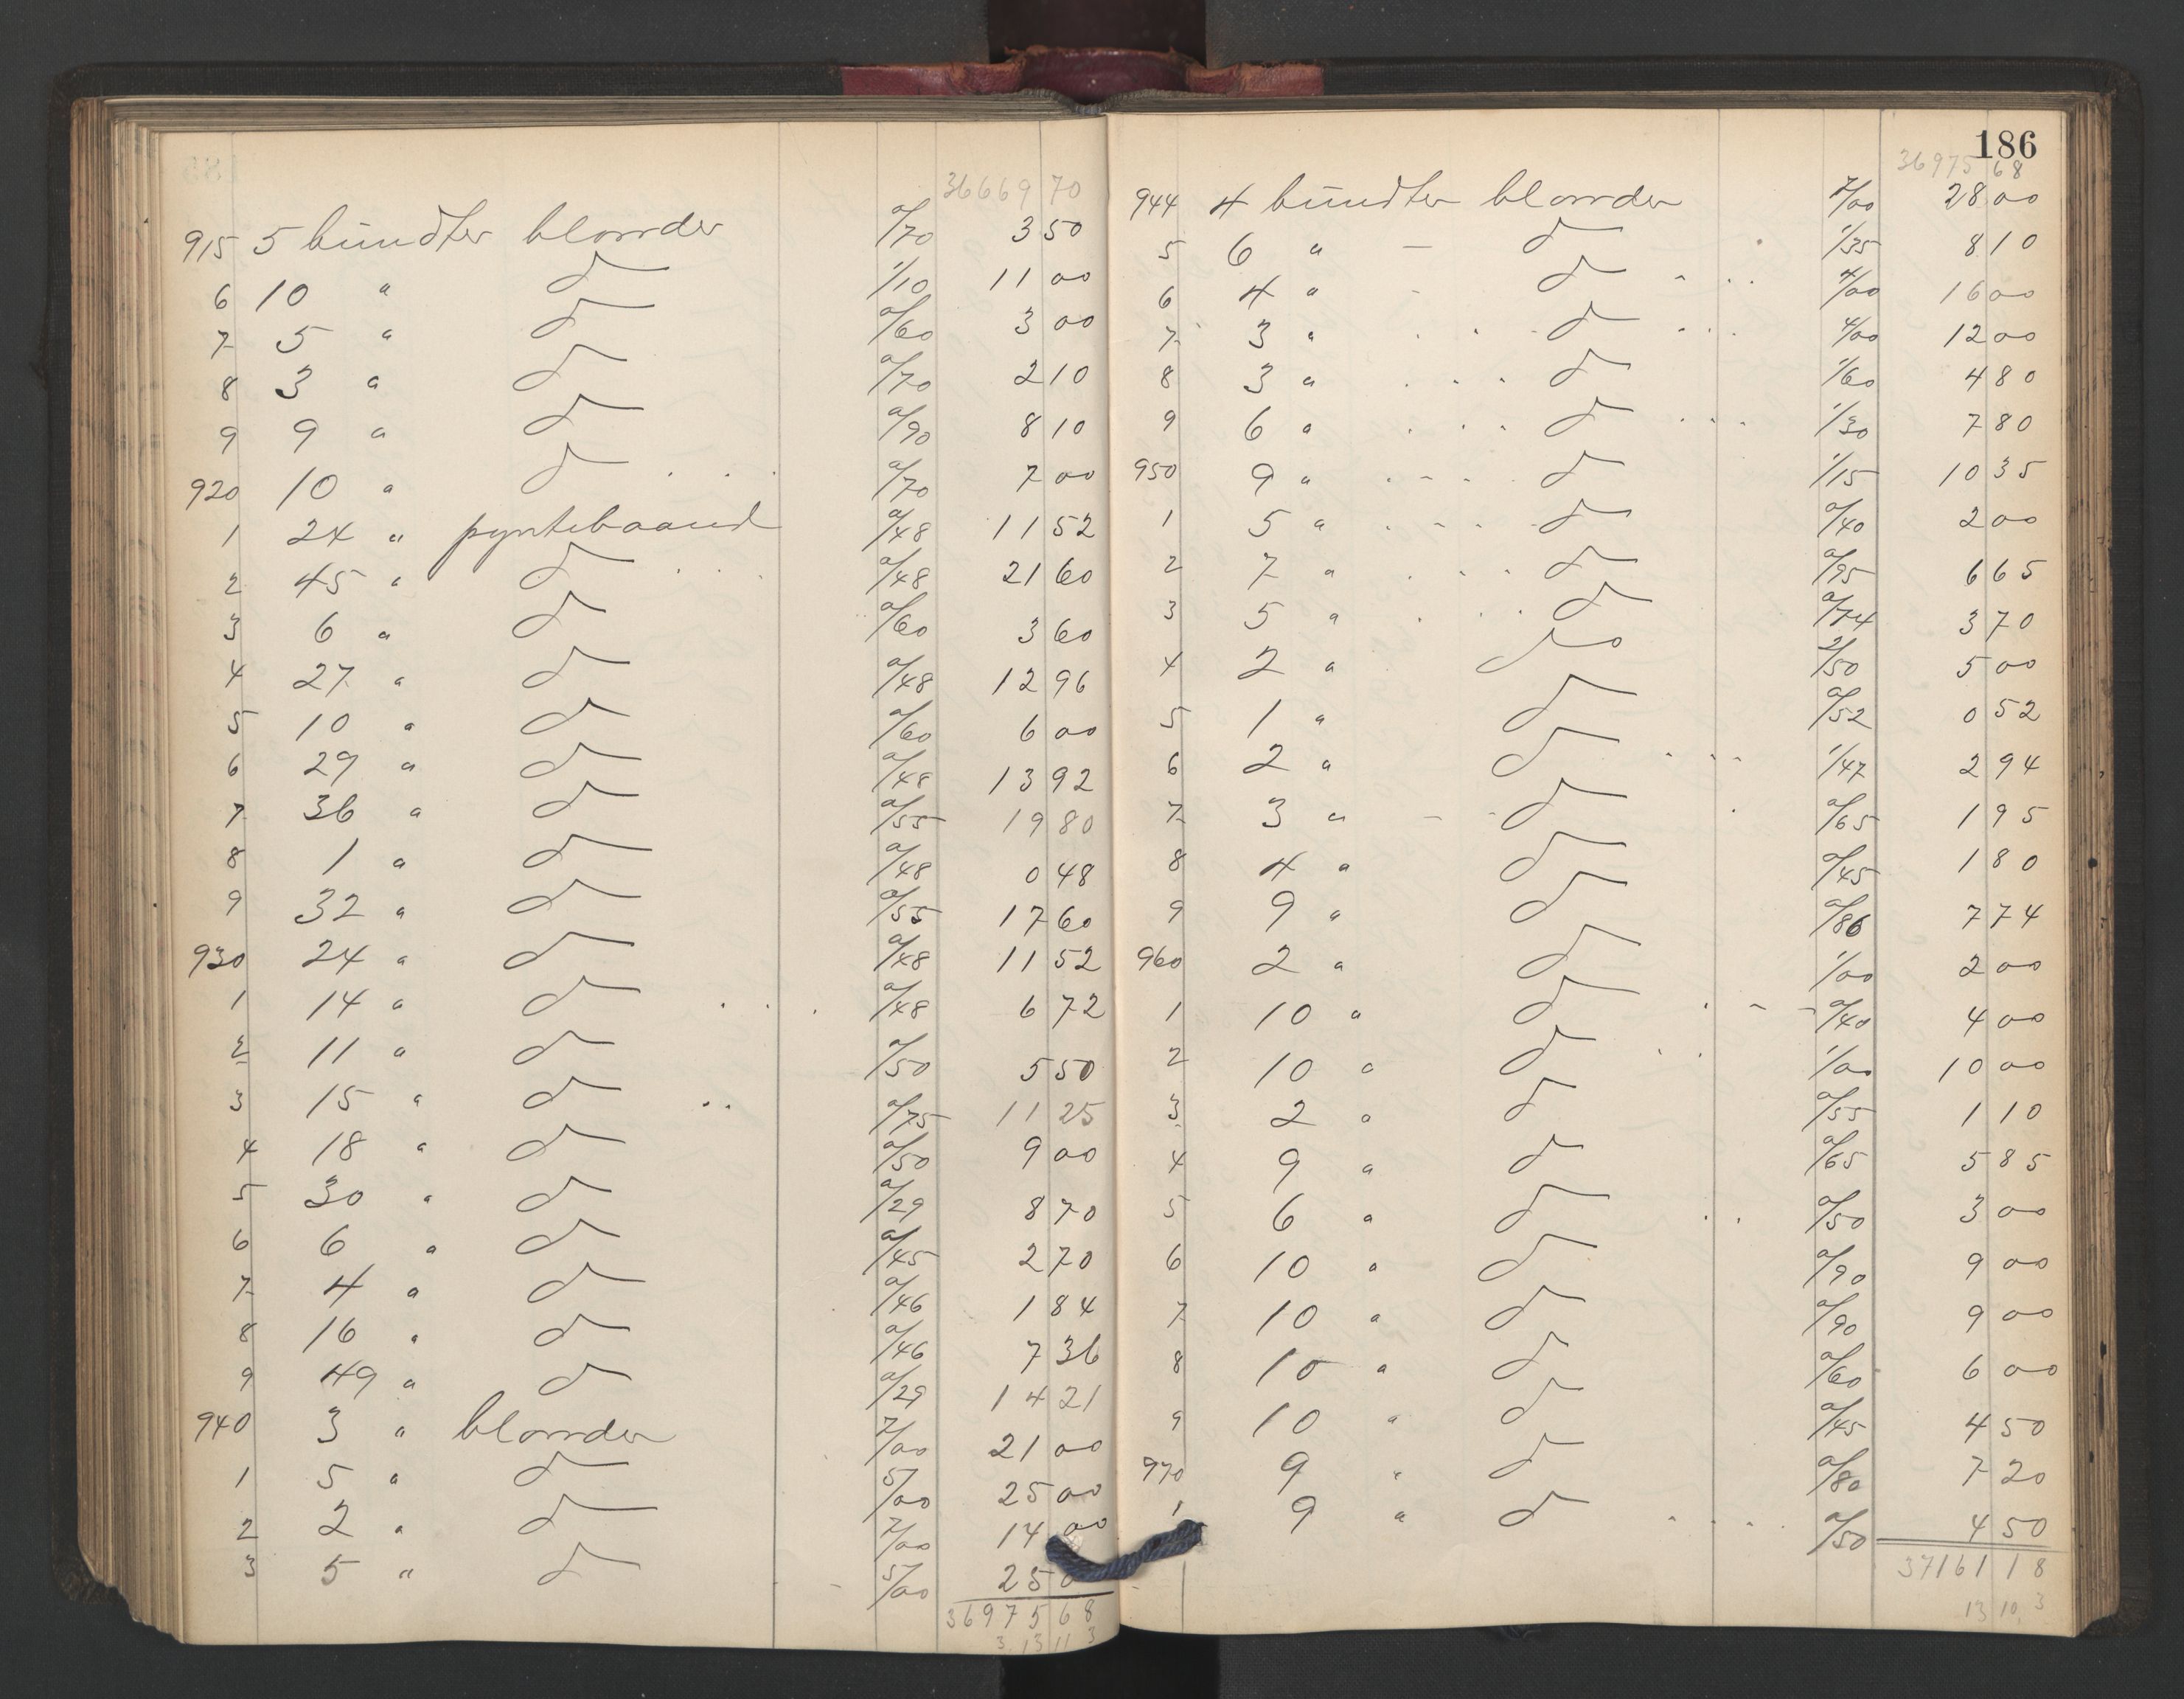 36669 70
915 5 bundter blonder a/70 3 50
6 10 " d 1/10 11 00
7 5 " d a/60 3 00
8 3 " d a/70 2 10
9 9 " d a/90 8 10
920 10 " d a/70 7 00
1 24 " pyntebaand a/48 11 52
2 45 " d a/48 21 60
3 6 " d a/60 3 60
4 27 " d a/48 12 96
5 10 " d a/60 6 00
6 29 " d a/48 13 92
7 36 " d a/55 19 80
8 1 " d a/48 0 48
9 32 " d a/55 17 60
930 24 " d a/48 11 52
1 14 " d a/48 6 72
2 11 " d a/50 5 50
3 15 " d a/75 11 25
4 18 " d a/50 9 00
5 30 " d a/29 8 70
6 6 " d a/45 2 70
7 4 " d a/46 1 84
8 16 " d a/46 7 36
9 49 " d a/29 14 21
940 3 " blonder 7/00 21 00
1 5 " d 5/00 25 00
2 2 " d 7/00 14 00
3 5 " d 5/00 25 0
36975 68
3 13 11 3
186
36975 68
944 4 bundter blonder 7/00 28 00
5 6 " d 1/35 8 10
6 4 " d 4/00 16 00
7 3 " d 4/00 12 00
8 3 " d 1/60 4 80
9 6 " d 1/30 7 80
950 9 " d 1/15 10 35
1 5 " d a/40 2 00
2 7 " d a/95 6 65
3 5 " d a/74 3 70
4 2 " do 2/50 5 00
5 1 " d a/52 0 52
6 2 " d 1/47 2 94
7 3 " d a/65 1 95
8 4 " d a/45 1 80
9 9 " d a/86 7 74
960 2 " d 1/00 2 00
1 10 " d a/40 4 00
2 10 " d 1/00 10 00
3 2 " d a/55 1 10
4 9 " d a/65 5 85
5 6 " d a/50 3 00
6 10 " d a/90 9 00
7 10 " d a/90 9 00
8 10 " d a/60 6 00
9 10 " d a/45 4 50
970 9 " d a/80 7 20
1 9 " d a/50 4 50
37161 18
13 10 3